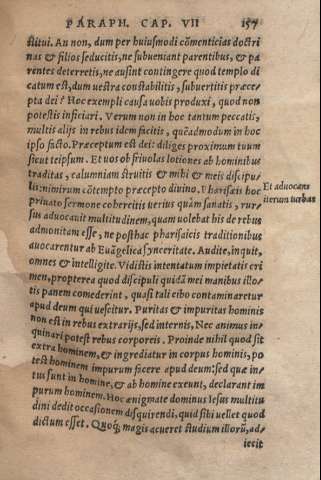 PARAPH. CAP. VII 157
stitui. An non, dum per huiusmodi cōmenticias doctri
nas & filios seducitis, ne subueniant parentibus, & pa
rentes deterretis, ne ausint contingere quod templo di
catum est, dum uestra constabilitis, subuertitis præce⸗
pta dei? Hoc exempli causa uobis produxi, quod non
potestis inficiari. Verum non in hoc tantum peccatis,
multis alijs in rebus idem facitis, quēadmodum in hoc
ipso facto. Præceptum est dei: diliges proximum tuum
sicut teipsum. Et uos ob friuolas lotiones ab hominibus
traditas, calumniam struitis & mihi & meis discipu⸗
lis: nimirum cōtempto præcepto diuino. Pharisæis hoc
Et aduocans
priuato sermone coherciti uerius quàm sanatis, rur⸗
iterum turbas
sus aduocauit multitudinem, quam uolebat his de rebus
admonitam esse, ne posthac pharisaicis traditionibus
auocarentur ab Euāgelica synceritate. Audite, inquit,
omnes & intelligite. Vidistis intentatum impietatis cri
men, propterea quod discipuli quidā mei manibus illo⸗
tis panem comederint, quasi tali cibo contaminaretur
apud deum qui uescitur. Puritas & impuritas hominis
non est in rebus extrarijs, sed internis, Nec animus in⸗
quinari potest rebus corporeis. Proinde nihil quod sit
extra hominem, & ingrediatur in corpus hominis, po
test hominem impurum facere apud deum: sed quæ in⸗
tus sunt in homine, & ab homine exeunt, declarant im
purum hominem. Hoc ænigmate dominus Iesus multitu
dini dedit occasionem disquirendi, quid sibi uellet quod
dictum esset. Quoq; magis acueret studium illorū, ad⸗
iecit